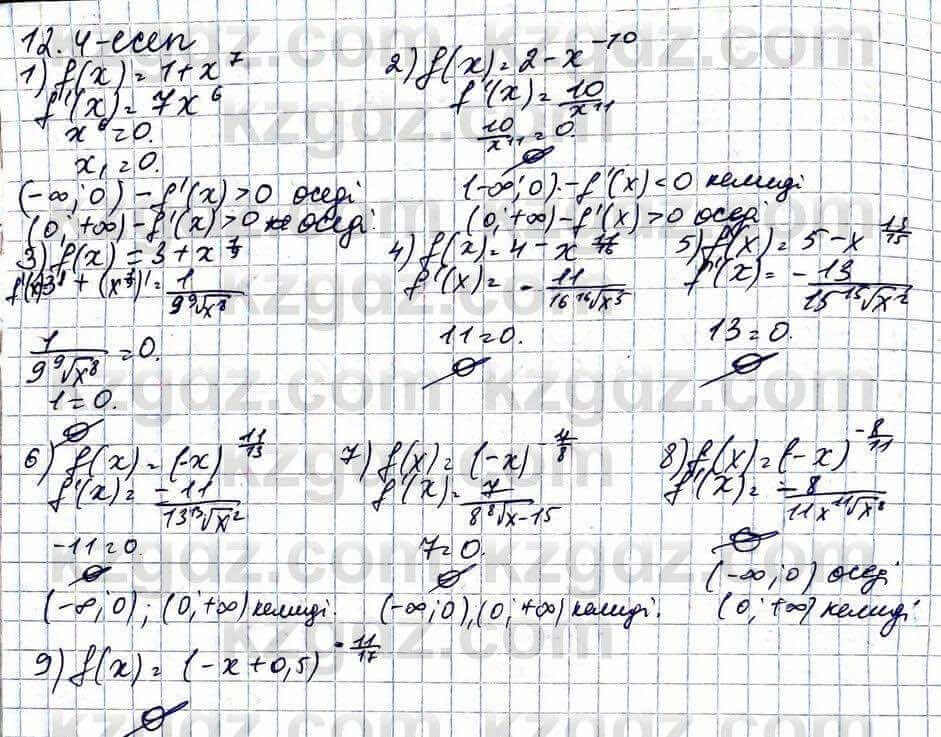 12.4-есеп
1) f(x) = 1 + x^7
f'(x) = 7x^6
x^6 = 0.
x₁ = 0.
(-∞; 0) - f'(x) > 0 өседі
(0; +∞) - f'(x) > 0 өседі.
2) f(x) = 2 - x^-10
f'(x) = 10/x^11
10/x^11 = 0.
∅
(-∞; 0) - f'(x) < 0 кемиді
(0; +∞) - f'(x) > 0 өседі
3) f(x) = 3 + x
f'(x) = 3' + (x)' = 1/(9 ⁹√x^8)
1/(9 ⁹√x^8) = 0.
1 = 0.
∅
4) f(x) = 4 - x
f'(x) = - 11/(16 ¹⁶√x^5)
11 = 0.
∅
5) f(x) = 5 - x^13/15
f'(x) = - 13/(15 ¹⁵√x^2)
13 = 0.
∅
6) f(x) = (-x)^11/13
f'(x) = -11/(13 ¹³√x^2)
-11 = 0.
∅
(-∞; 0); (0; +∞) кемиді.
7) f(x) = (-x)
f'(x) = 7/(8 ⁸√x-15)
7 = 0.
∅
(-∞; 0), (0; +∞) кемиді.
8) f(x) = (-x)^-8/11
f'(x) = -8/(11x ¹¹√x^8)
∅
(-∞; 0) өседі
(0; +∞) кемиді
9) f(x) = (-x + 0,5)^-11/17
∅
kzgdz.com